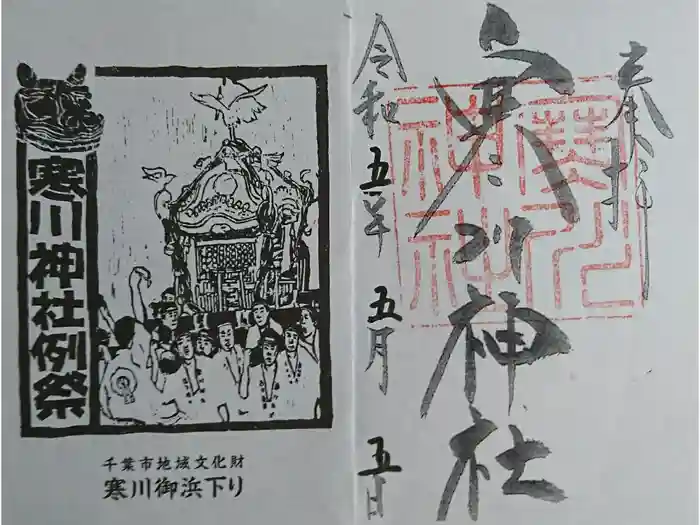 奉拝
寒川神社
令和五年 五月 五日
寒川神社
寒川神社例祭
千葉市地域文化財
寒川御浜下り